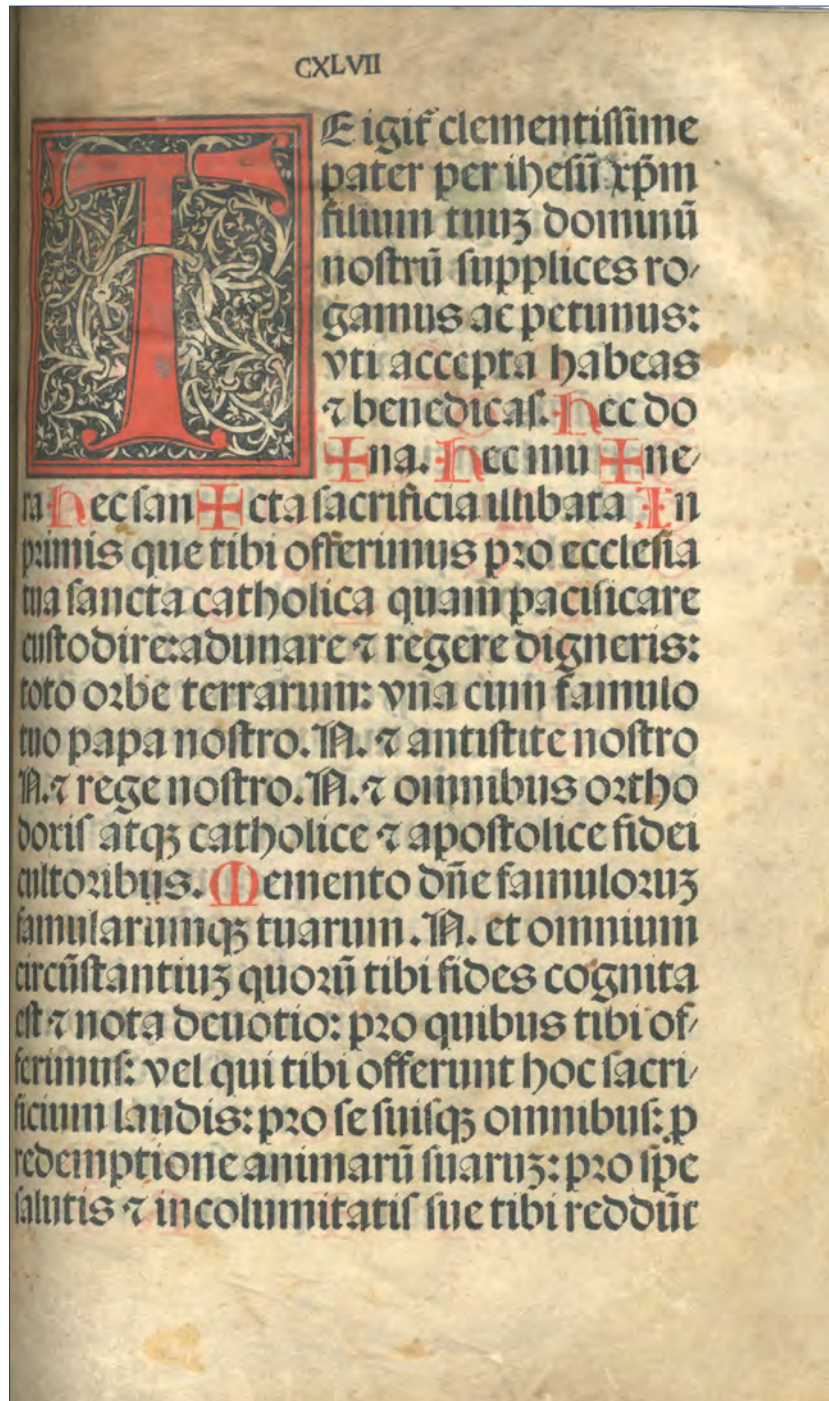 CXLVII
TE igit᷑ clementissime
pater per ihesū xp̄m
filium tuuȝ dominū
nostrū supplices ro/
gamus ac petimus:
vti accepta habeas
⁊ benedicas. Hec do
✠na. Hec mu✠ne/
ra Hec san✠cta sacrificia illibata In
primis que tibi offerimus pro ecclesia
tua sancta catholica quam pacificare
custodire: adunare ⁊ regere digneris:
toto orbe terrarum: vna cum famulo
tuo papa nostro. N. ⁊ antistite nostro
N. ⁊ rege nostro. N. ⁊ omnibus ortho
doxis atqȝ catholice ⁊ apostolice fidei
cultoribus. Memento dn̄e famuloruȝ
famularumqȝ tuarum. N. et omnium
circūstantiuȝ quorū tibi fides cognita
est ⁊ nota deuotio: pro quibus tibi of/
ferimus: vel qui tibi offerunt hoc sacri/
ficium laudis: pro se suisqȝ omnibus: ꝓ
redemptione animarū suaruȝ: pro spe
salutis ⁊ incolumitatis sue tibi reddūt